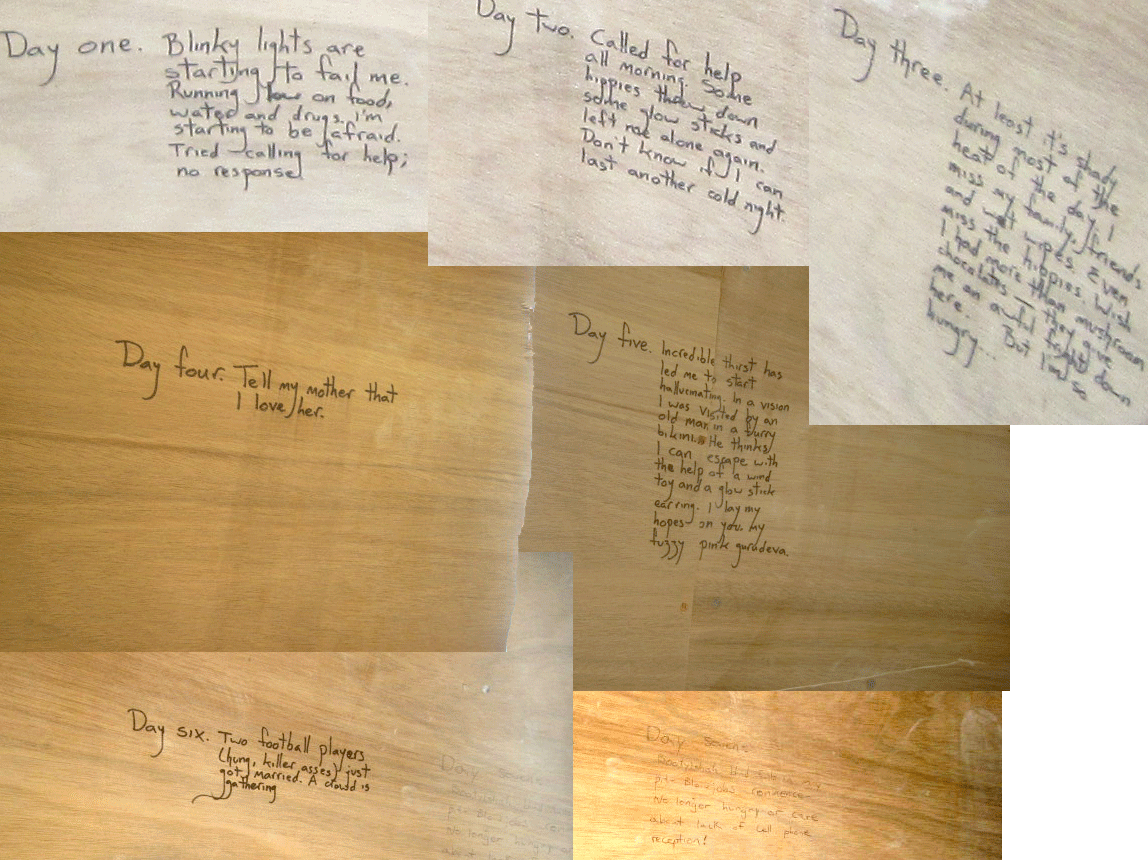 Day one. Blinky lights are
starting to fail me.
Running low on food,
water and drugs. I'm
starting to be afraid.
Tried calling for help;
no response!
Day two. Called for help
all morning. Some
hippies threw down
some glow sticks and
left me alone again.
Don't know if I can
last another cold night.
Day three. At least it's shady
during most of the
heat of the day. I
miss my family, friends
and wet wipes. Even
miss the hippies. Wish
I had more than mushroom
chocolates - they give
me an awful fright down
here. But I'm so
hungry...
Day four. Tell my mother that
I love her.
Day five. Incredible thirst has
led me to start
hallucinating. In a vision
I was visited by an
old man in a furry
bikini. He thinks
I can escape with
the help of a wind
toy and a glow stick
earring. I lay my
hopes on you, my
fuzzy pink gurudeva.
Day six. Two football players
(hung, killer asses) just
got married. A crowd is
gathering
Day seven.
No longer hungry or care
about lack of cell phone
reception!
Day
No longer hungry
about lack of